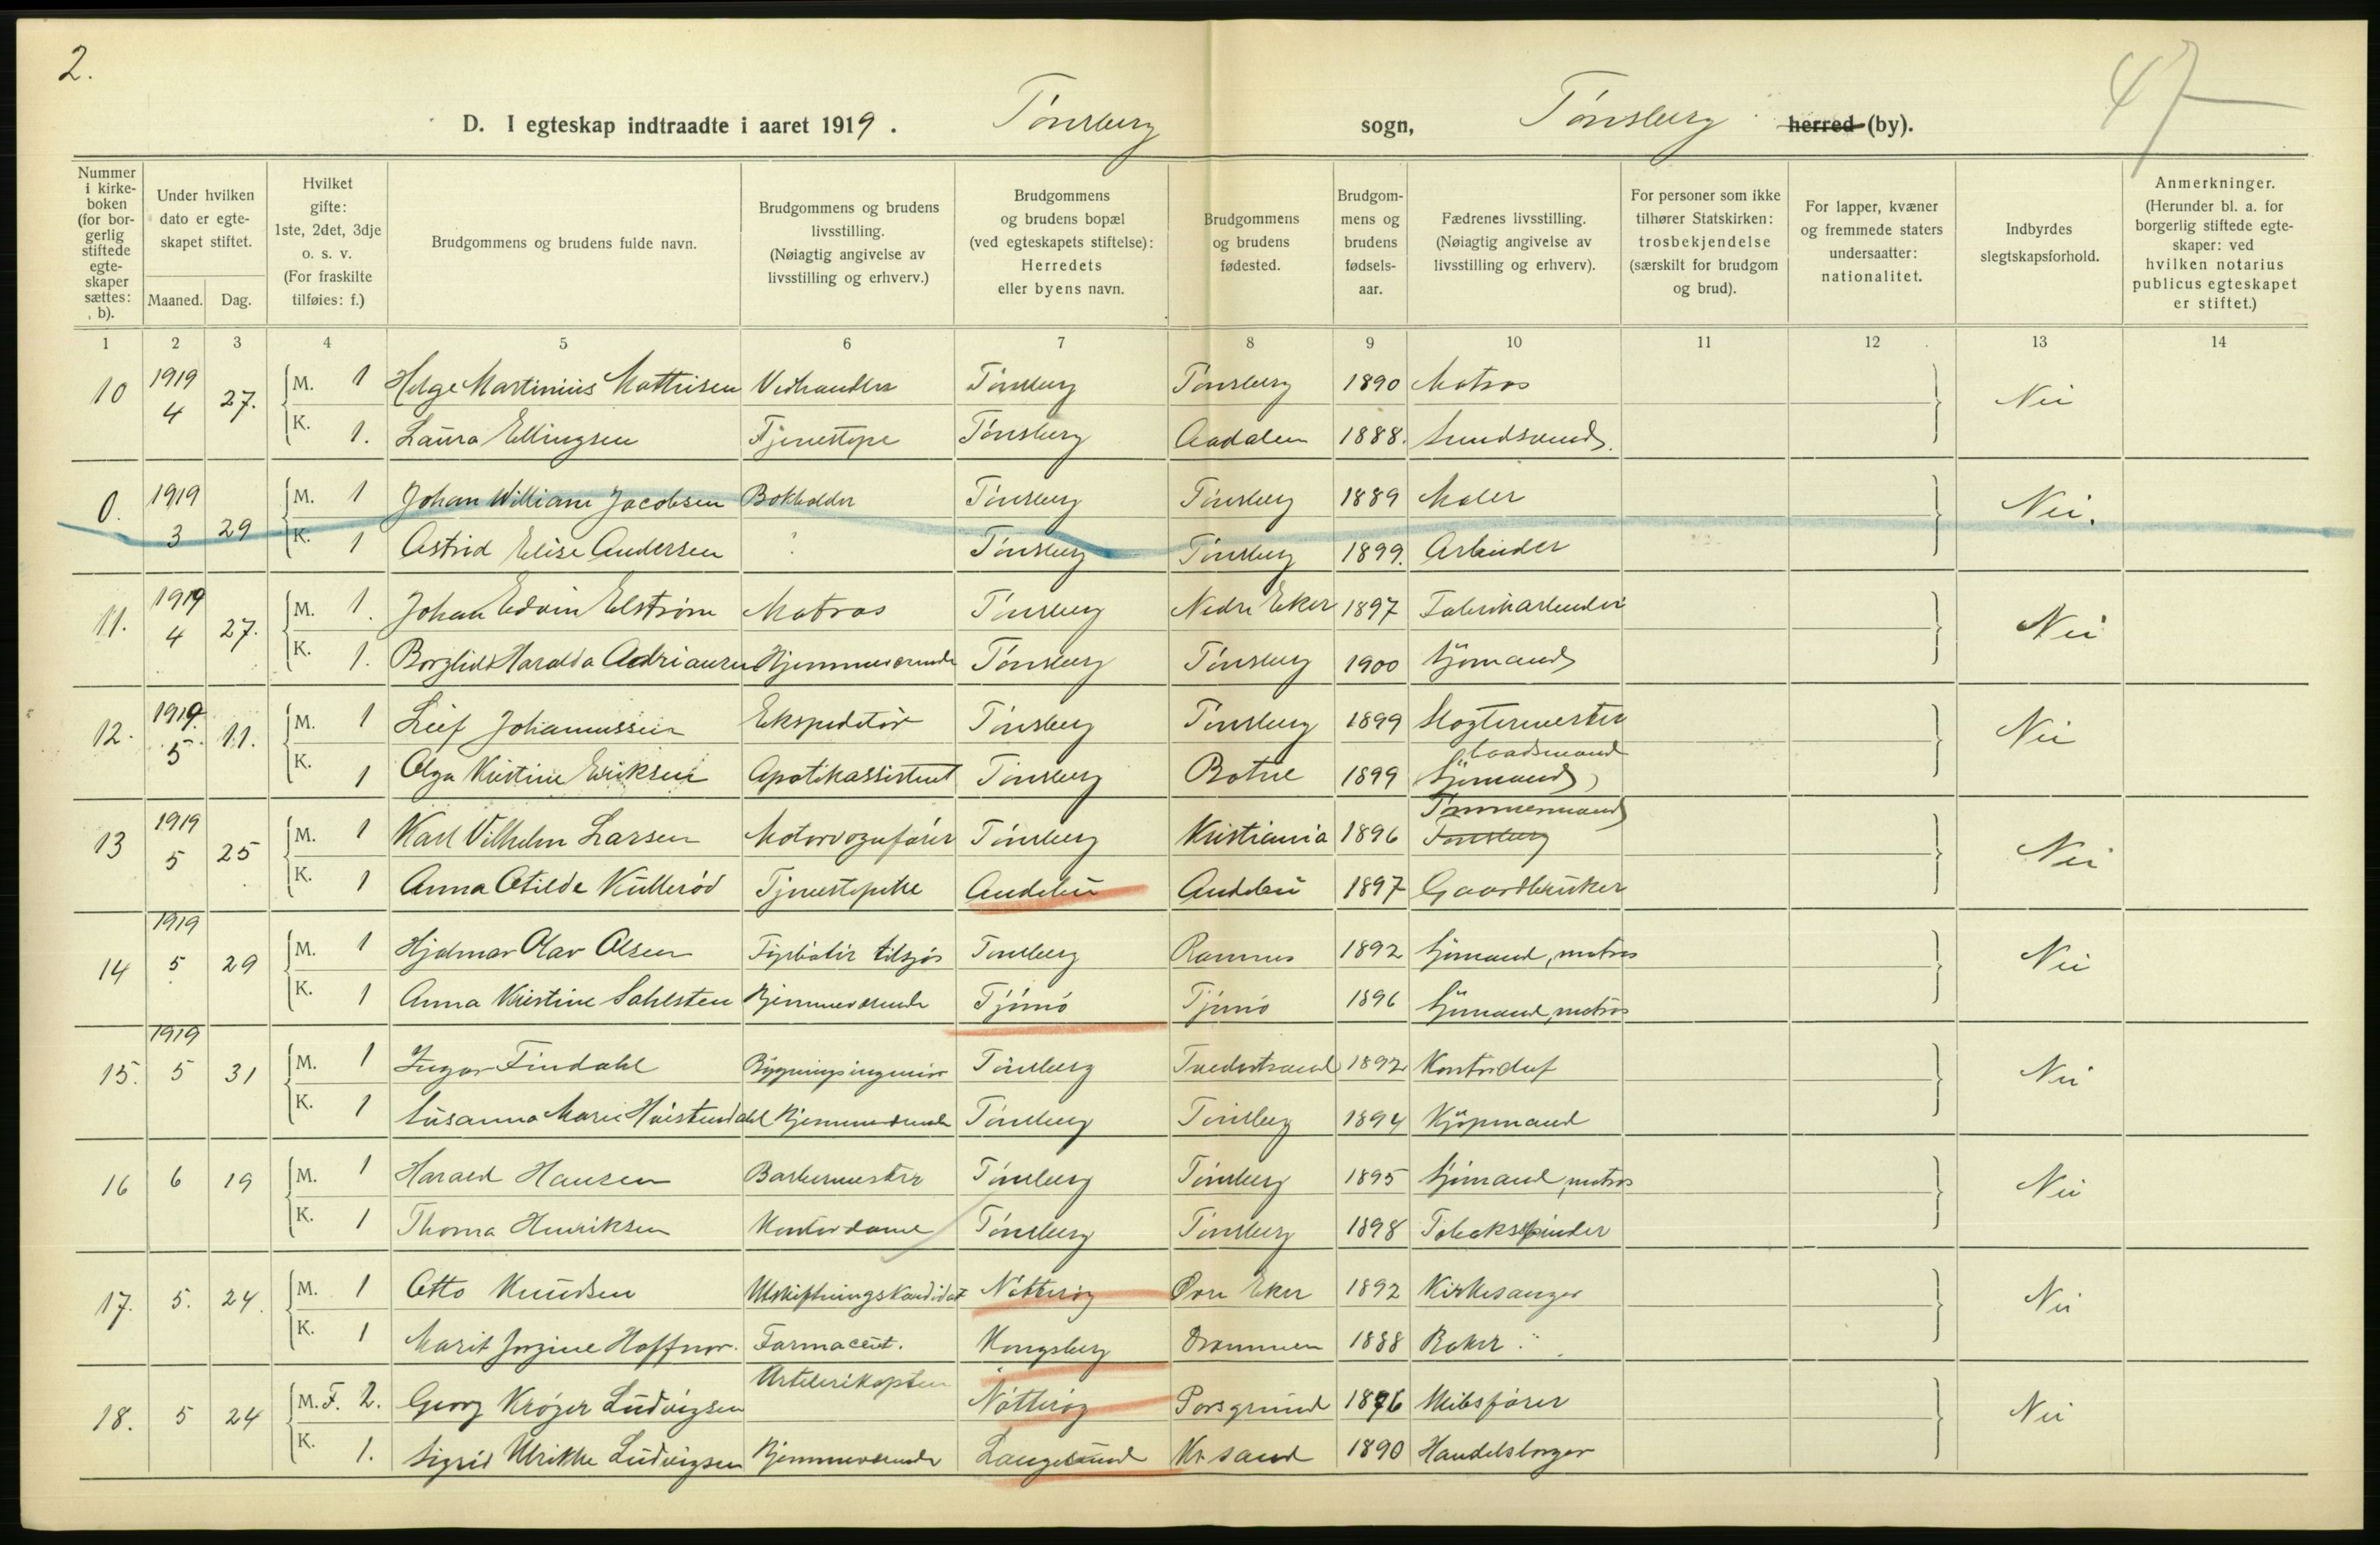 2.
47
D. I egteskap indtraadte i aaret 1919. Tønsberg sogn, Tønsberg herred (by).
Nummer i kirkeboken (for borgerlig stiftede egteskaper sættes: b).
Under hvilken dato er egteskapet stiftet.
Maaned. Dag.
Hvilket gifte: 1ste, 2det, 3dje o. s. v. (For fraskilte tilføies: f.)
Brudgommens og brudens fulde navn.
Brudgommens og brudens livsstilling. (Nøiagtig angivelse av livsstilling og erhverv.)
Brudgommens og brudens bopæl (ved egteskapets stiftelse): Herredets eller byens navn.
Brudgommens og brudens fødested.
Brudgommens og brudens fødselsaar.
Fædrenes livsstilling. (Nøiagtig angivelse av livsstilling og erhverv).
For personer som ikke tilhører Statskirken: trosbekjendelse (særskilt for brudgom og brud).
For lapper, kvæner og fremmede staters undersaatter: nationalitet.
Indbyrdes slegtskapsforhold.
Anmerkninger. (Herunder bl. a. for borgerlig stiftede egteskaper: ved hvilken notarius publicus egteskapet er stiftet.)
1 2 3 4 5 6 7 8 9 10 11 12 13 14
10 1919 4 27. M. 1 Helge Martinius Mathisen Vedhandler Tønsberg Tønsberg 1890 Matros Nei
K. 1. Laura Ellingsen Tjenestepe Tønsberg Aadalen 1888.
0. 1919 3 29 M. 1 Johan William Jacobsen Bokholder Tønsberg Tønsberg 1889 Maler Nei.
K. 1 Astrid Elise Andersen Tønsberg Tønsberg 1899. Arbeider
11. 1919 4 27. M. 1. Johan Edvin Elstrøm Matros Tønsberg Nedre Eker 1897 Fabrikarbeider Nei
K. 1. Borghild Haralda Adriansen Hjemmeværende Tønsberg Tønsberg 1900 Sjømand
12. 1919. 5 11. M. 1 Leif Johannessen Ekspeditør Tønsberg Tønsberg 1899 Slagtermester Nei
K. 1 Olga Kristine Eriksen Apotekassistent Tønsberg Botne 1899 Sjømand Baadsmand
13 1919 5 25 M. 1 Karl Vilhelm Larsen Motorvognfører Tønsberg Kristiania 1896 Tømmermand Tønsberg Nei
K. 1 Anna Otilde Kullerød Tjenestepike Andebu Andebu 1897 Gaardbruker
14 1919 5 29 M. 1 Hjalmar Olav Olsen Fyrbøter tilsjøs Tønsberg Ramnes 1892 Sjømand, matros Nei
K. 1 Anna Kristine Sahlsten Hjemmeværende Tjømø Tjømø 1896 Sjømand, matros
15. 1919 5 31 M. 1 Ingar Findahl Bygningsingeniør Tønsberg Tvedestrand 1892 Kontorchef Nei
K. 1 Susanna Marie Hvistendahl Hjemmeværende Tønsberg Tønsberg 1894 Kjøpmand
16 6 19 M. 1 Harald Hansen Barbermester Tønsberg Tønsberg 1895 Sjømand, matros Nei
K. 1 Thoma Henriksen Kontordame Tønsberg Tønsberg 1898 Tobakspinder
17. 5. 24. M. 1 Otto Knudsen Utskiftningskandidat Nøtterøy Øvre Eker 1892 Kirkesanger Nei
K. 1 Marit Jorgine Hoffnor. Farmaceut. Kongsberg Drammen 1888 Baker
18. 5 24 M. F. 2. Georg Krøger Ludvigsen Artilerikaptein Nøtterøy Porsgrund 1876 Skibsfører Nei
K. 1. Sigrid Ulrikke Ludvigsen Hjemmeværende Langesund Kr.sand 1890 Handelsborger